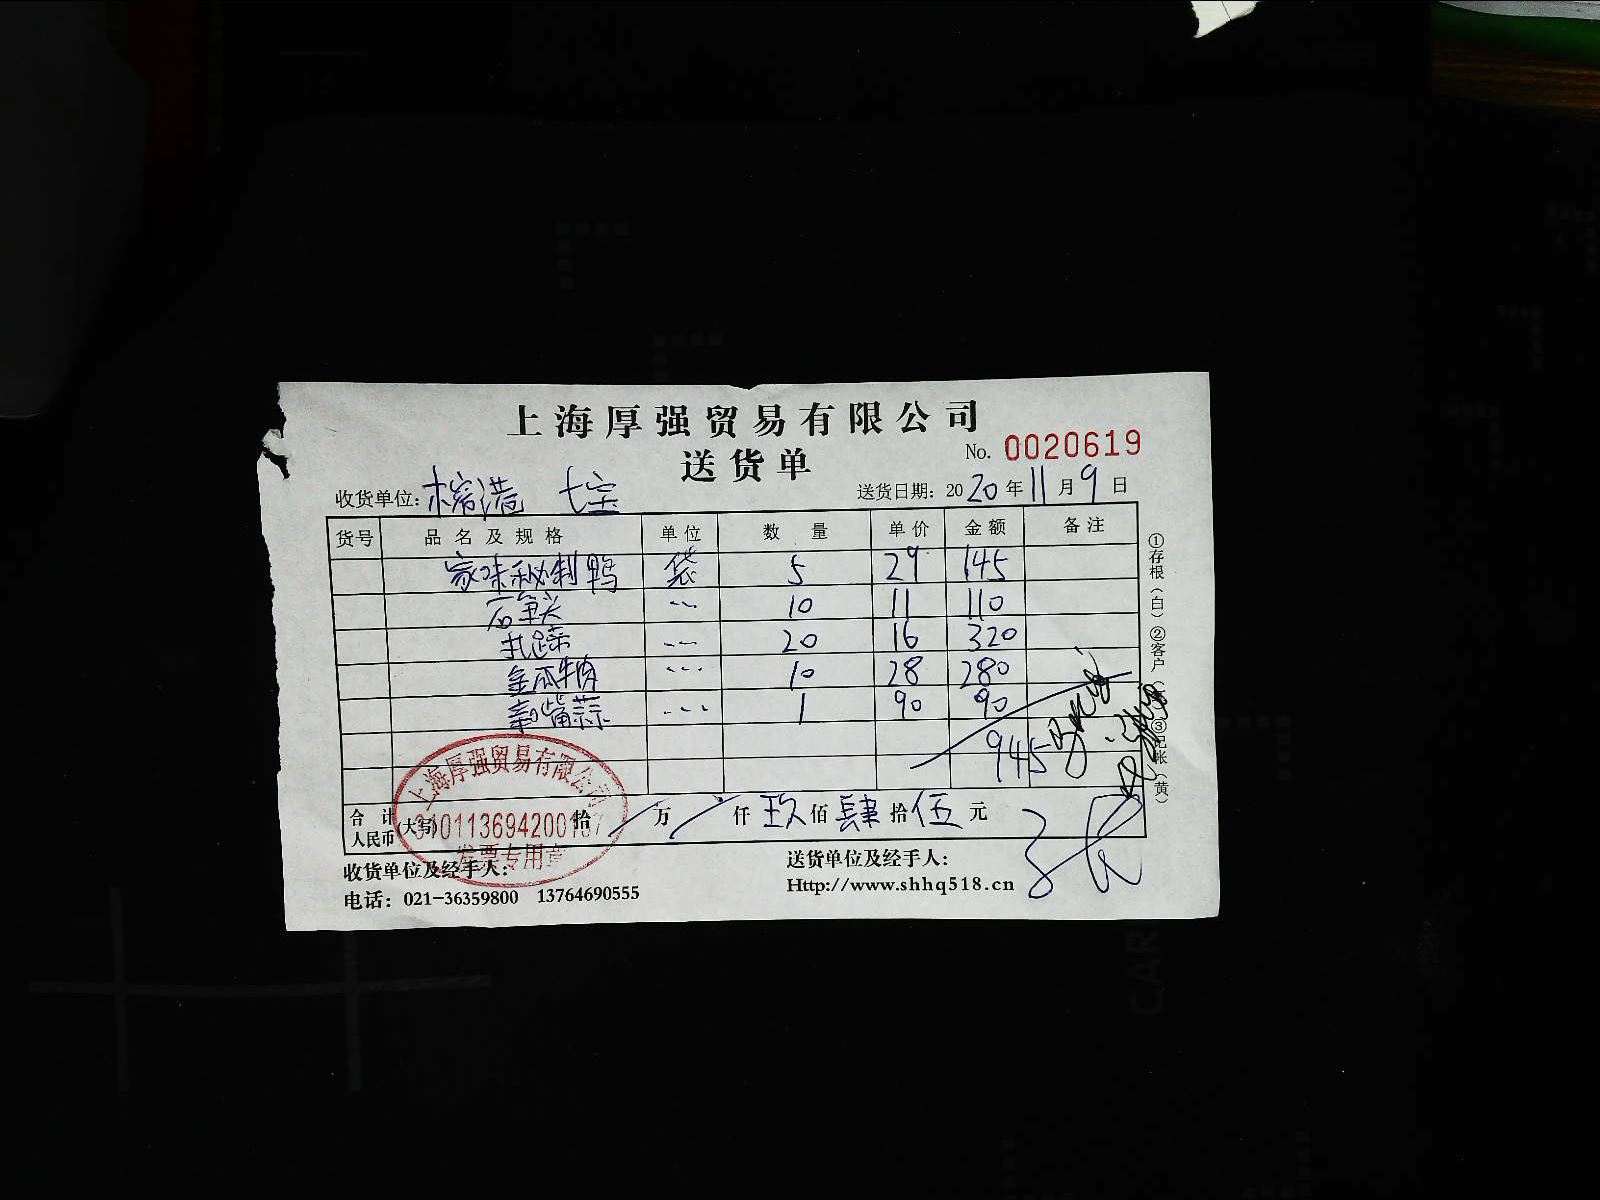 上海厚强贸易有限公司
送货单
No. 0020619
收货单位: 榕港 七宝
送货日期: 2020年11月9日
货号 品名及规格 单位 数量 单价 金额 备注
家味秘制鸭 袋 5 29 145
石笋尖 --- 10 11 110
扎蹄 --- 20 16 320
金瓜牛肉 --- 10 28 280
--- 1 90 90
945
合计人民币(大写) 拾 万 仟 玖佰肆拾伍元
上海厚强贸易有限公司
发票专用章
收货单位及经手人:
送货单位及经手人:
电话: 021-36359800 13764690555
Http://www.shhq518.cn
①存根(白)②客户
③记帐(黄)